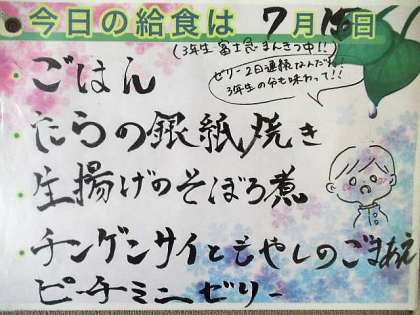 今日の給食は 7月15日
(3年生 富士見まんきつ中!!
ゼリー2日連続なんだね。
3年生の分も味わって!!
・ごはん
・たらの銀紙焼き
・生揚げのそぼろ煮
・チンゲンサイともやしのごまあえ
ピーチミニゼリー